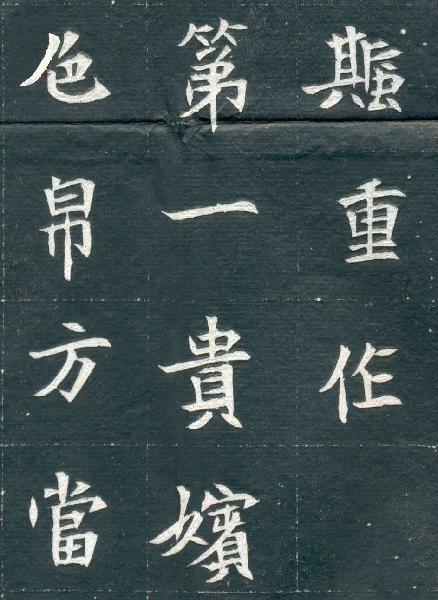 重作
第一貴嬪
色帛方當